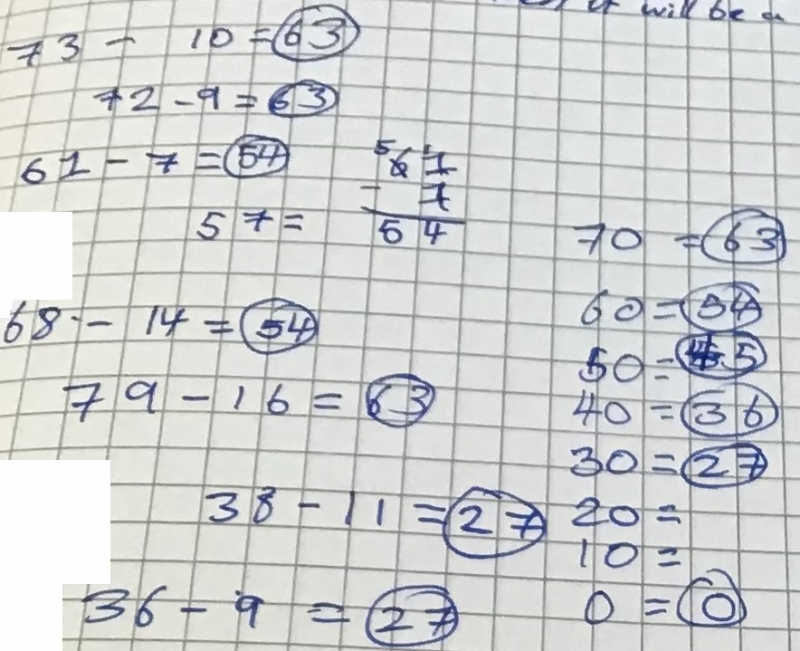 it will be a
73 - 10 = 63
72 - 9 = 63
61 - 7 = 54
57 =
5 61 1
- 7
54
68 - 14 = 54
79 - 16 = 63
38 - 11 = 27
36 - 9 = 27
70 = 63
60 = 54
50 = 45
40 = 36
30 = 27
20 =
10 =
0 = 0